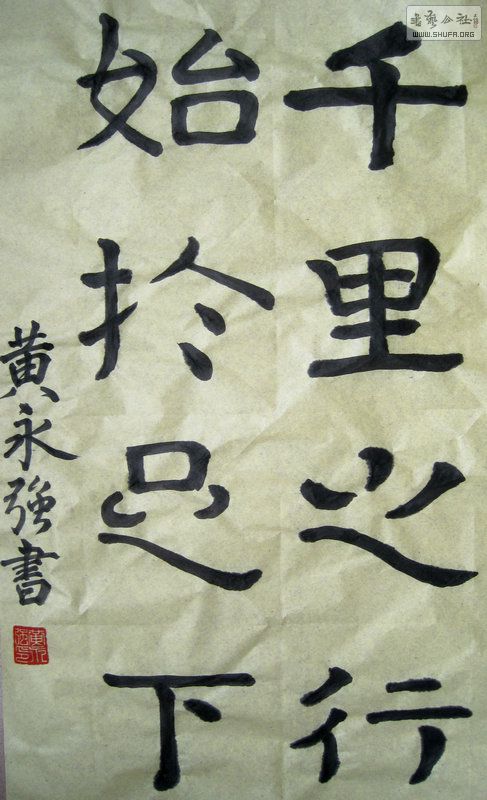 千里之行
始於足下
黄永强書
書藝公社
WWW.SHUFA.ORG